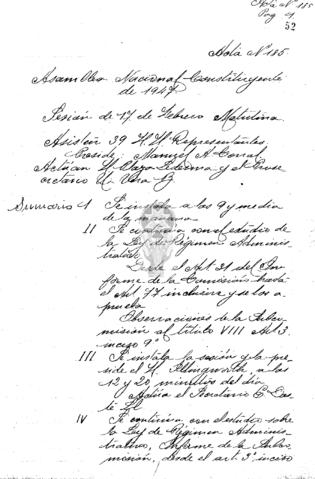 Acta Nº 185
Pag 1
52
Acta Nº 185
Asamblea Nacional Constituyente
de 1947
Sesión de 17 de Febrero Matutina
Asistén 39 H.H. Representantes
Preside Manuel A. Corral
Actúan
Sumario I Se instala a las 9 y media
de la mañana
II Se continúa con el estudio de
la Ley de Régimen Adminis-
trativo
Desde el Art 31 del In-
forme de la Comisión hasta
el Art 77 inclusive y se los a
prueba
Observaciones de la Subco
misión al título VIII Art 3
inciso 9º
III Se instala la sesión y la pre-
side el H. Illingworth, a las
12 y 20 minutos del día
Actúa el Secretario
IV Se continúa con el estudio sobre
la Ley de Régimen Adminis-
trativo, Informe de la Subco
misión, desde el art. 3º inciso